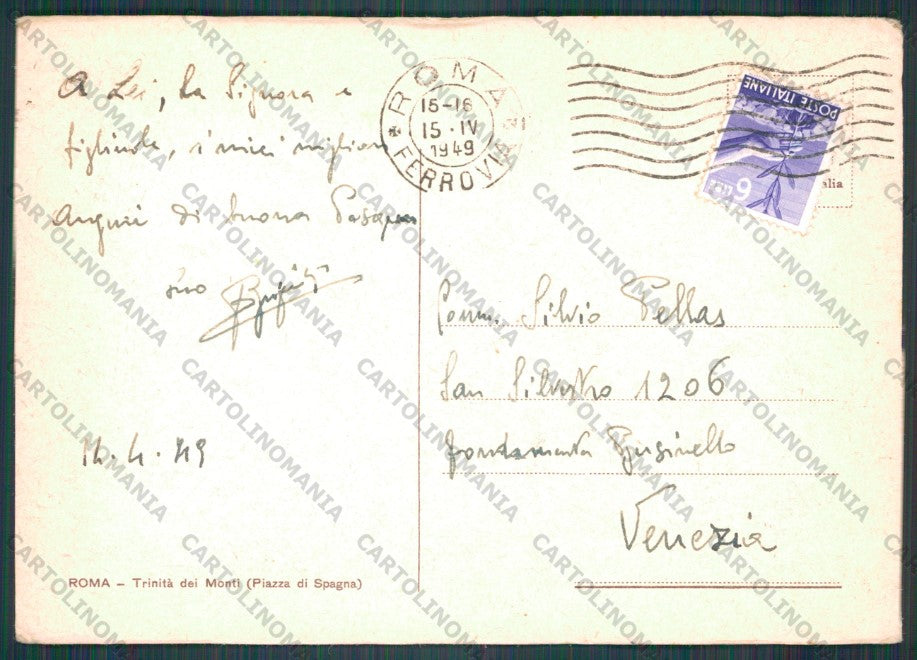 A Lei, la Signora e
figliuole, i miei migliori
Auguri di buona Pasqua
suo
14.4.49
ROMA – Trinità dei Monti (Piazza di Spagna)
ROMA
15-16
15·IV
1949
FERROVIA
POSTE ITALIANE
6 LIRE
alia
Comm. Silvio Pellas
San Silvestro 1206
fondamenta Businello
Venezia
CARTOLINOMANIA